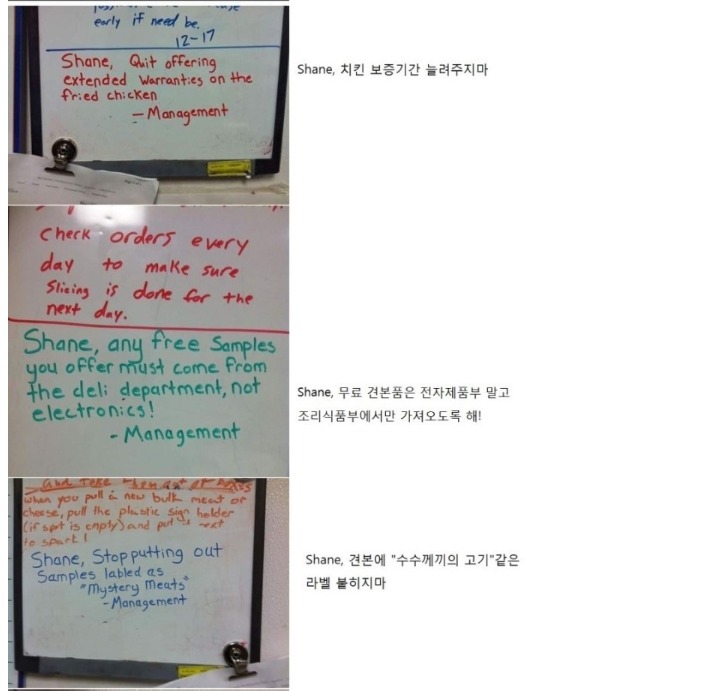 early if need be.
12-17
Shane, Quit offering
extended Warranties on the
fried chicken
- Management
Shane, 치킨 보증기간 늘려주지마
check orders every
day to make sure
Slicing is done for the
next day.
Shane, any free Samples
you offer must come from
the deli department, not
electronics!
- Management
Shane, 무료 견본품은 전자제품부 말고
조리식품부에서만 가져오도록 해!
when you pull a new bulk meat or
cheese, pull the plastic sign holder
(if spot is empty) and put it next
to spark!
Shane, Stop putting out
Samples labled as
"Mystery Meats"
- Management
Shane, 견본에 "수수께끼의 고기"같은
라벨 붙히지마